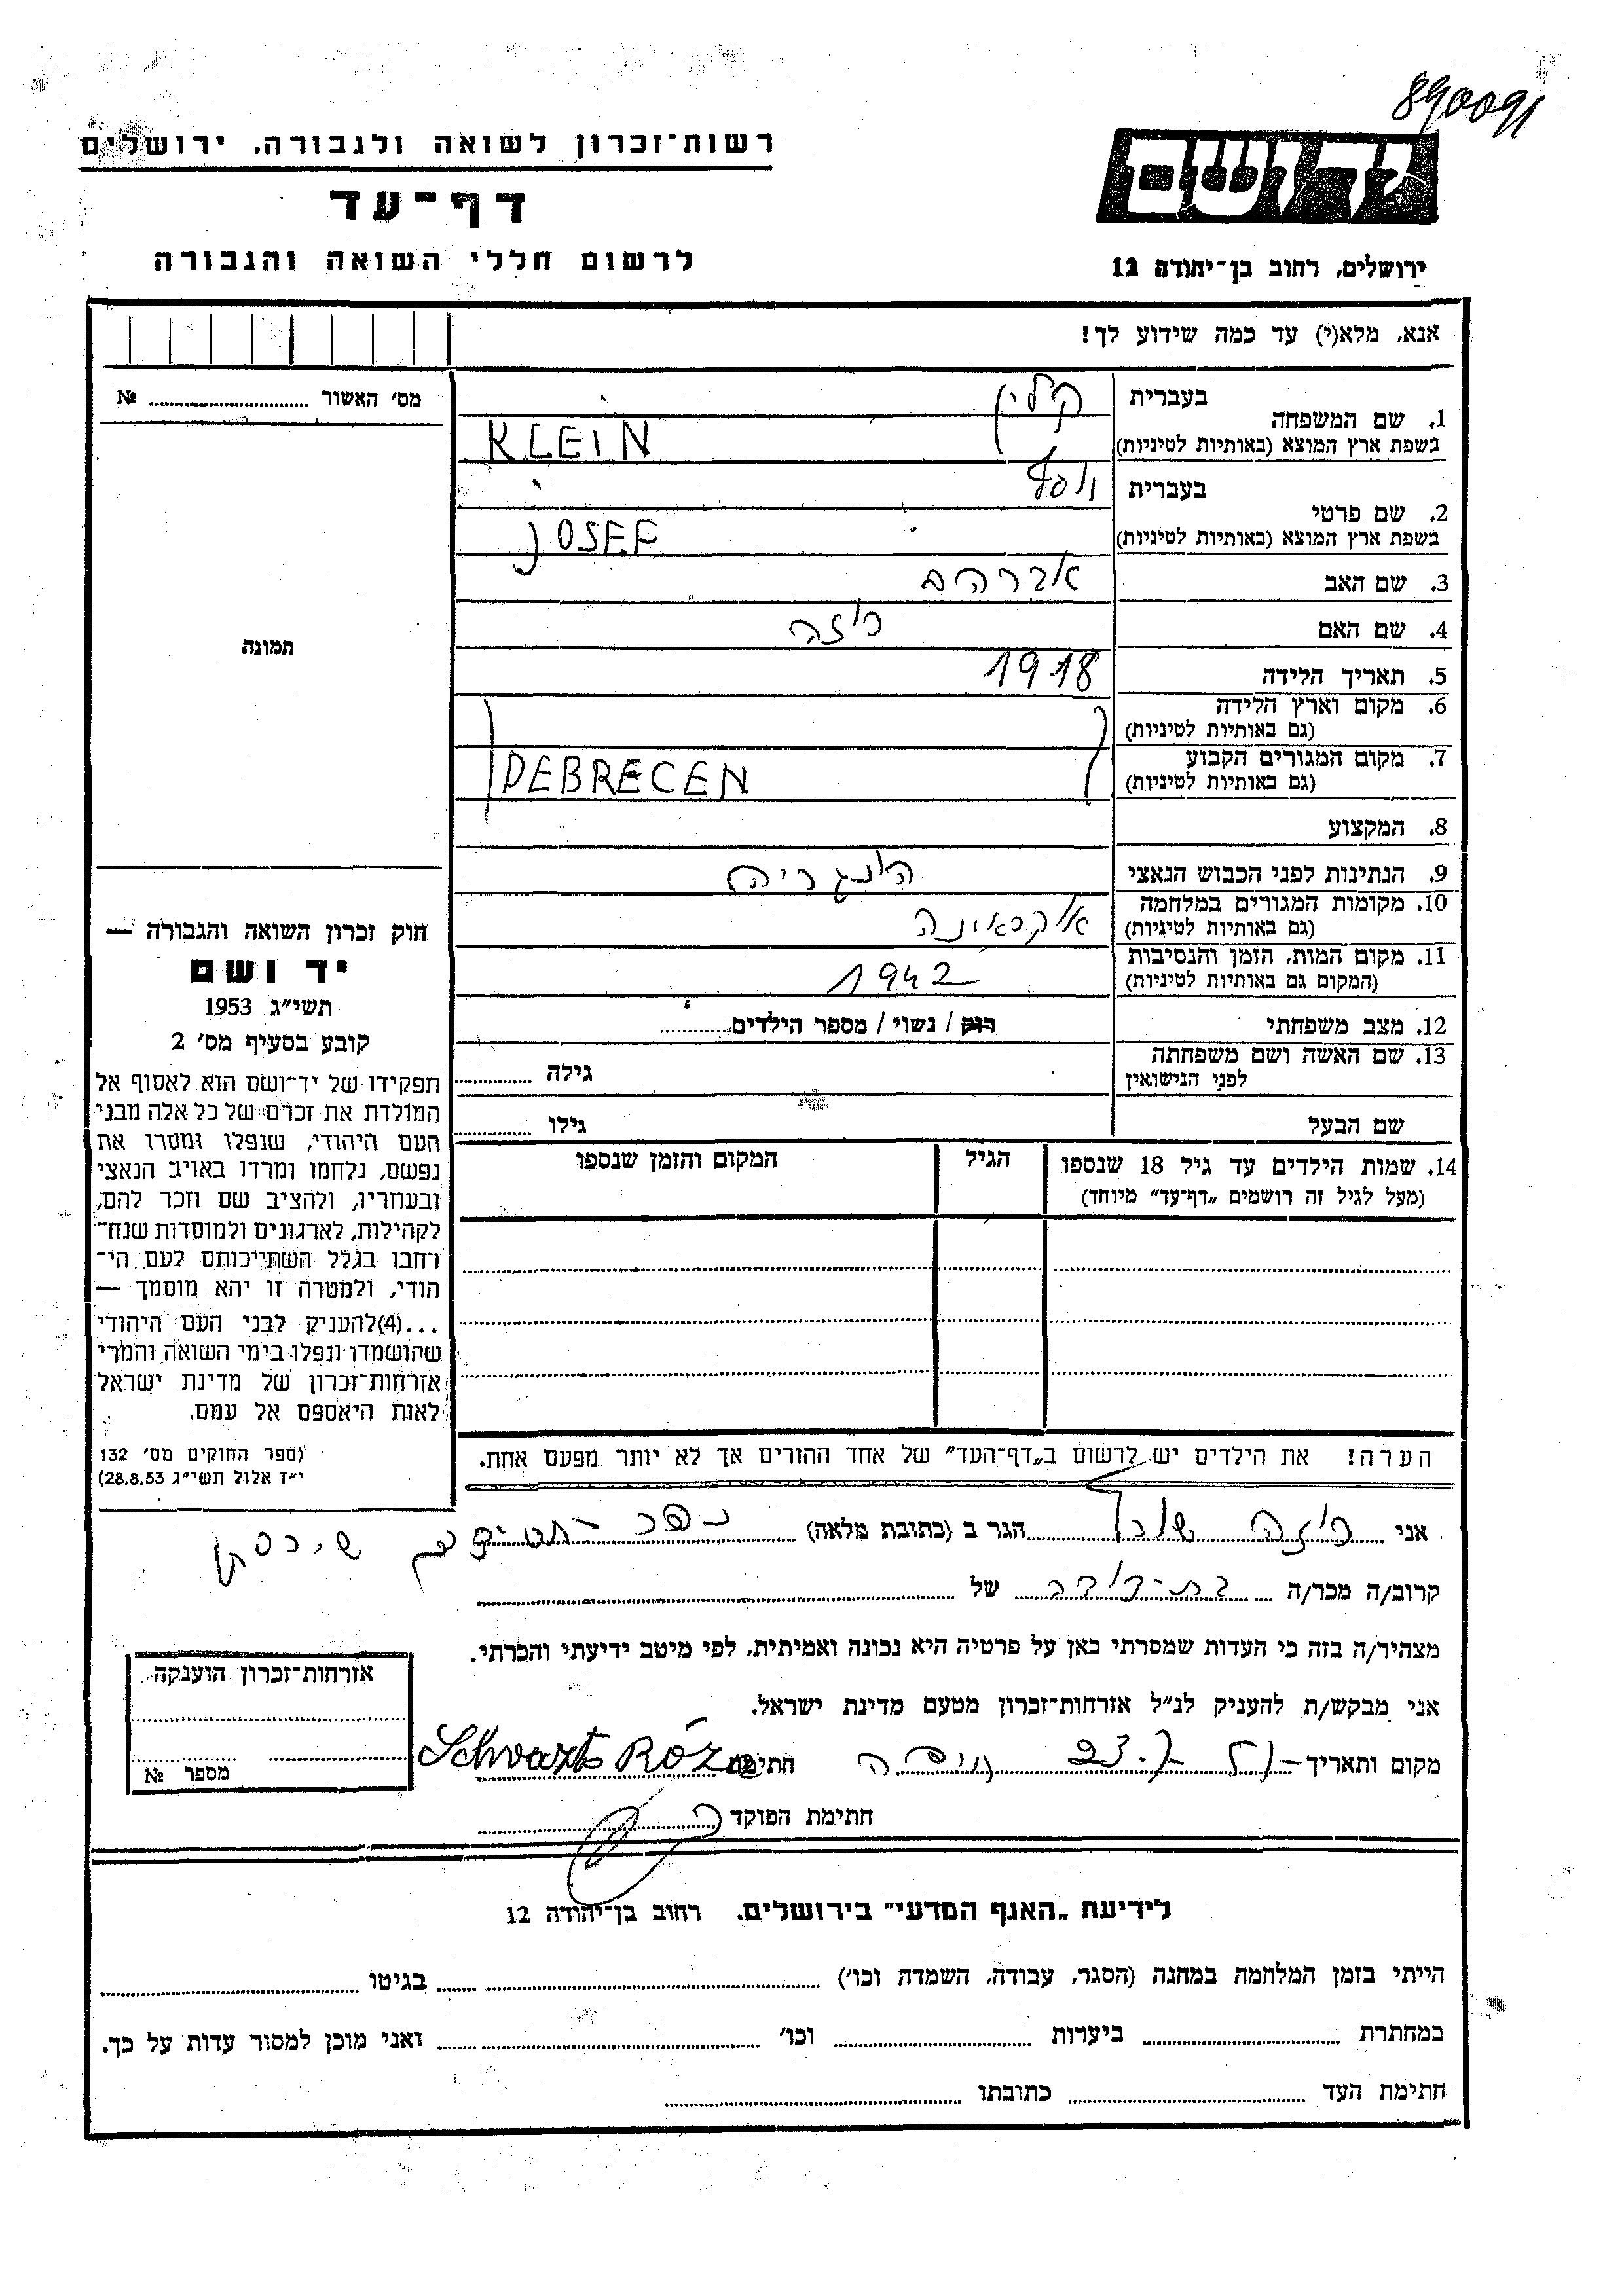 890091
רשות־זכרון לשואה ולגבורה. ירושלים
דף־עד
לרשום חללי השואה והגבורה
יד ושם
ירושלים, רחוב בן־יהודה 12
אנא, מלא(י) עד כמה שידוע לך!
מס׳ האשור № 
1. שם המשפחה
בעברית קליין
בשפת ארץ המוצא (באותיות לטיניות) KLEIN
2. שם פרטי
בעברית יוסף
בשפת ארץ המוצא (באותיות לטיניות) JOSEF
3. שם האב אברהם
4. שם האם רוזה
5. תאריך הלידה 1918
6. מקום וארץ הלידה
(גם באותיות לטיניות)
7. מקום המגורים הקבוע
(גם באותיות לטיניות) DEBRECEN
8. המקצוע
9. הנתינות לפני הכבוש הנאצי הונגריה
10. מקומות המגורים במלחמה
(גם באותיות לטיניות) אוקראינה
11. מקום המות, הזמן והנסיבות
(המקום גם באותיות לטיניות) 1942
12. מצב משפחתי רוק / נשוי / מספר הילדים
13. שם האשה ושם משפחתה
לפני הנישואין גילה
שם הבעל גילו
14. שמות הילדים עד גיל 18 שנספו
(מעל לגיל זה רושמים „דף־עד״ מיוחד)
הגיל
המקום והזמן שנספו
הערה! את הילדים יש לרשום ב„דף־העד״ של אחד ההורים אך לא יותר מפעם אחת.
תמונה
חוק זכרון השואה והגבורה —
יד ושם
תשי״ג 1953
קובע בסעיף מס׳ 2
תפקידו של יד־ושם הוא לאסוף אל
המולדת את זכרם של כל אלה מבני
העם היהודי, שנפלו ומסרו את
נפשם, נלחמו ומרדו באויב הנאצי
ובעוזריו, ולהציב שם וזכר להם,
לקהילות, לארגונים ולמוסדות שנח־
רחבו בגלל השתייכותם לעם הי־
הודי, ולמטרה זו יהא מוסמך —
...(4)להעניק לבני העם היהודי
שהושמדו ונפלו בימי השואה והמרי
אזרחות־זכרון של מדינת ישראל
לאות היאספם אל עמם.
(ספר החוקים מס׳ 132
י״ז אלול תשי״ג 28.8.53)
אני רוזה הגר ב (כתובת מלאה) כפר
קרוב/ה מכר/ה בת־דודה של
מצהיר/ה בזה כי העדות שמסרתי כאן על פרטיה היא נכונה ואמיתית, לפי מיטב ידיעתי והכרתי.
אני מבקש/ת להעניק לנ״ל אזרחות־זכרון מטעם מדינת ישראל.
מקום ותאריך חיפה 23 חתימה Schvartz Róza
חתימת הפוקד
אזרחות־זכרון הוענקה
מספר №
לידיעת „האגף המדעי״ בירושלים. רחוב בן־יהודה 12
הייתי בזמן המלחמה במחנה (הסגר, עבודה, השמדה וכו׳) בגיטו
במחתרת ביערות וכו׳ ואני מוכן למסור עדות על כך.
חתימת העד כתובתו